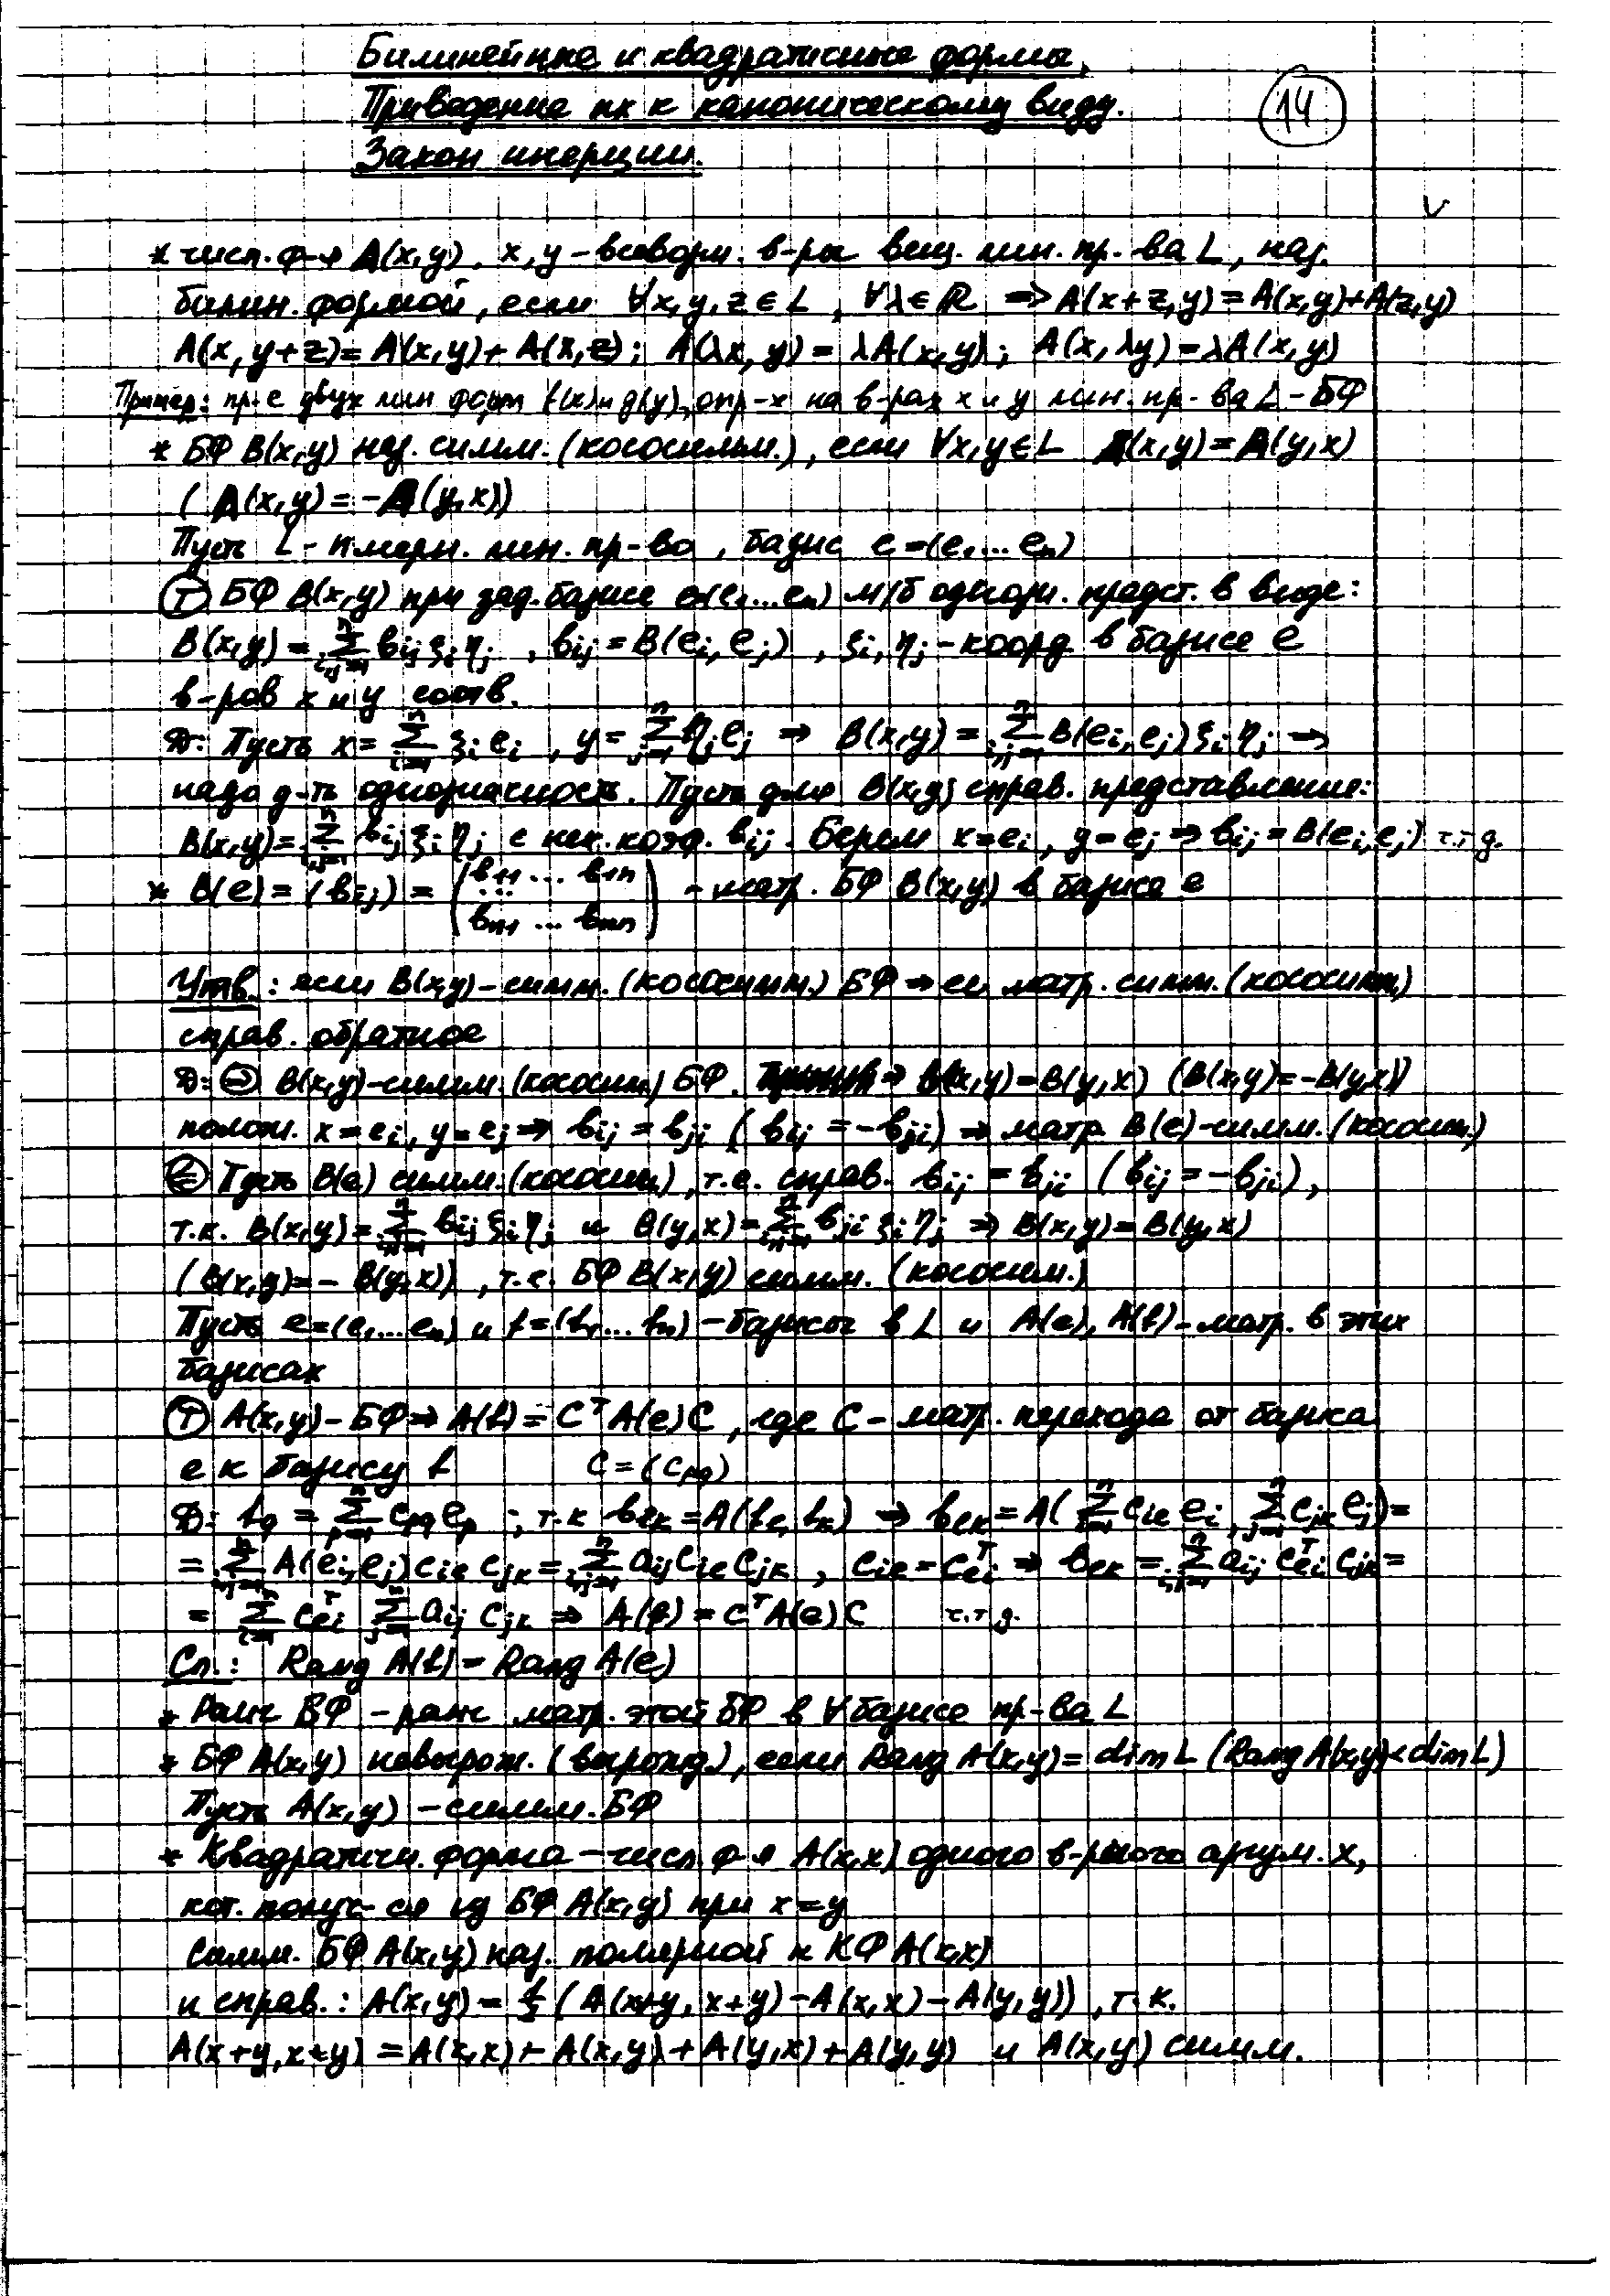 Билинейные и квадратичные формы.
Приведение их к каноническому виду.
14
Закон инерции.
* числ. ф-я A(x,y), x,y – всевозм. в-ры вещ. лин. пр-ва L, наз.
билин. формой, если ∀x,y,z∈L, ∀λ∈ℝ ⇒ A(x+z,y)=A(x,y)+A(z,y)
A(x,y+z)=A(x,y)+A(x,z); A(λx,y)=λA(x,y); A(x,λy)=λA(x,y)
Пример: пр-е двух лин форм f(x) и g(y), опр-х на в-рах x и y лин. пр-ва L – БФ
* БФ B(x,y) наз. симм. (кососимм.), если ∀x,y∈L A(x,y)=A(y,x)
(A(x,y)=-A(y,x))
Пусть L – n мерн. лин. пр-во, базис e=(e₁...eₙ)
Ⓣ БФ B(x,y) при зад. базисе e=(e₁...eₙ) м/б однозн. предст. в виде:
B(x,y)=∑ⁿᵢ,ⱼ₌₁ bᵢⱼ ξᵢ ηⱼ, bᵢⱼ=B(eᵢ,eⱼ), ξᵢ, ηⱼ – коорд в базисе e
в-ров x и y соотв.
Д: Пусть x=∑ⁿᵢ₌₁ ξᵢ eᵢ, y=∑ⁿⱼ₌₁ ηⱼ eⱼ ⇒ B(x,y)=∑ⁿᵢ,ⱼ₌₁ B(eᵢ,eⱼ) ξᵢ ηⱼ →
надо д-ть однозначность. Пусть для B(x,y) справ. представление:
B(x,y)=∑ⁿᵢ,ⱼ₌₁ bᵢⱼ ξᵢ ηⱼ с нек. коэф. bᵢⱼ. Берем x=eᵢ, y=eⱼ ⇒ bᵢⱼ=B(eᵢ,eⱼ) ч.т.д.
* B(e)=(bᵢⱼ)=(b₁₁ ... b₁ₙ ... bₙ₁ ... bₙₙ) – матр. БФ B(x,y) в базисе e
Утв.: если B(x,y) – симм. (кососимм.) БФ ⇒ ее матр. симм. (кососимм)
справ. обратное
Д: ⇒ B(x,y) – симм. (кососим) БФ. ⇒ B(x,y)=B(y,x) (B(x,y)=-B(y,x))
полож. x=eᵢ, y=eⱼ ⇒ bᵢⱼ=bⱼᵢ (bᵢⱼ=-bⱼᵢ) ⇒ матр B(e) – симм. (кососим.)
⇐ Пусть B(e) симм. (кососим), т.е. справ. bᵢⱼ=bⱼᵢ (bᵢⱼ=-bⱼᵢ),
т.к. B(x,y)=∑ⁿᵢ,ⱼ₌₁ bᵢⱼ ξᵢ ηⱼ и B(y,x)=∑ⁿᵢ,ⱼ₌₁ bⱼᵢ ξᵢ ηⱼ ⇒ B(x,y)=B(y,x)
(B(x,y)=-B(y,x)), т.е. БФ B(x,y) симм. (кососим.)
Пусть e=(e₁...eₙ) и f=(f₁...fₙ) – базисы в L и A(e), A(f) – матр. в этих
базисах
Ⓣ A(x,y) – БФ ⇒ A(f)=CᵀA(e)C, где C – матр. перехода от базиса
e к базису f C=(c_pq)
Д: f_q=∑ⁿ_p=1 c_pq e_p; т.к b_ek=A(f_e,f_k) ⇒ b_ek=A(∑ⁿᵢ₌₁ c_ie eᵢ, ∑ⁿⱼ₌₁ c_jk eⱼ)=
=∑ⁿᵢ,ⱼ₌₁ A(eᵢ,eⱼ) c_ie c_jk=∑ⁿᵢ,ⱼ₌₁ aᵢⱼ c_ie c_jk, c_ie=cᵀ_ei ⇒ b_ek=∑ⁿᵢ,ⱼ₌₁ aᵢⱼ cᵀ_ei c_jk=
=∑ⁿᵢ₌₁ cᵀ_ei ∑ⁿⱼ₌₁ aᵢⱼ c_jk ⇒ A(f)=CᵀA(e)C ч.т д.
Сл.: Rang A(f)=Rang A(e)
* Ранг БФ – ранг матр. этой БФ в ∀ базисе пр-ва L
* БФ A(x,y) невырож. (вырожд.), если Rang A(x,y)=dim L (Rang A(x,y)<dim L)
Пусть A(x,y) – симм. БФ
* Квадратичн. форма – числ. ф-я A(x,x) одного в-рного аргум. x,
кот. получ-ся из БФ A(x,y) при x=y
Симм. БФ A(x,y) наз. полярной к КФ A(x,x)
и справ.: A(x,y)=½(A(x+y,x+y)-A(x,x)-A(y,y)), т.к.
A(x+y,x+y)=A(x,x)+A(x,y)+A(y,x)+A(y,y) и A(x,y) симм.